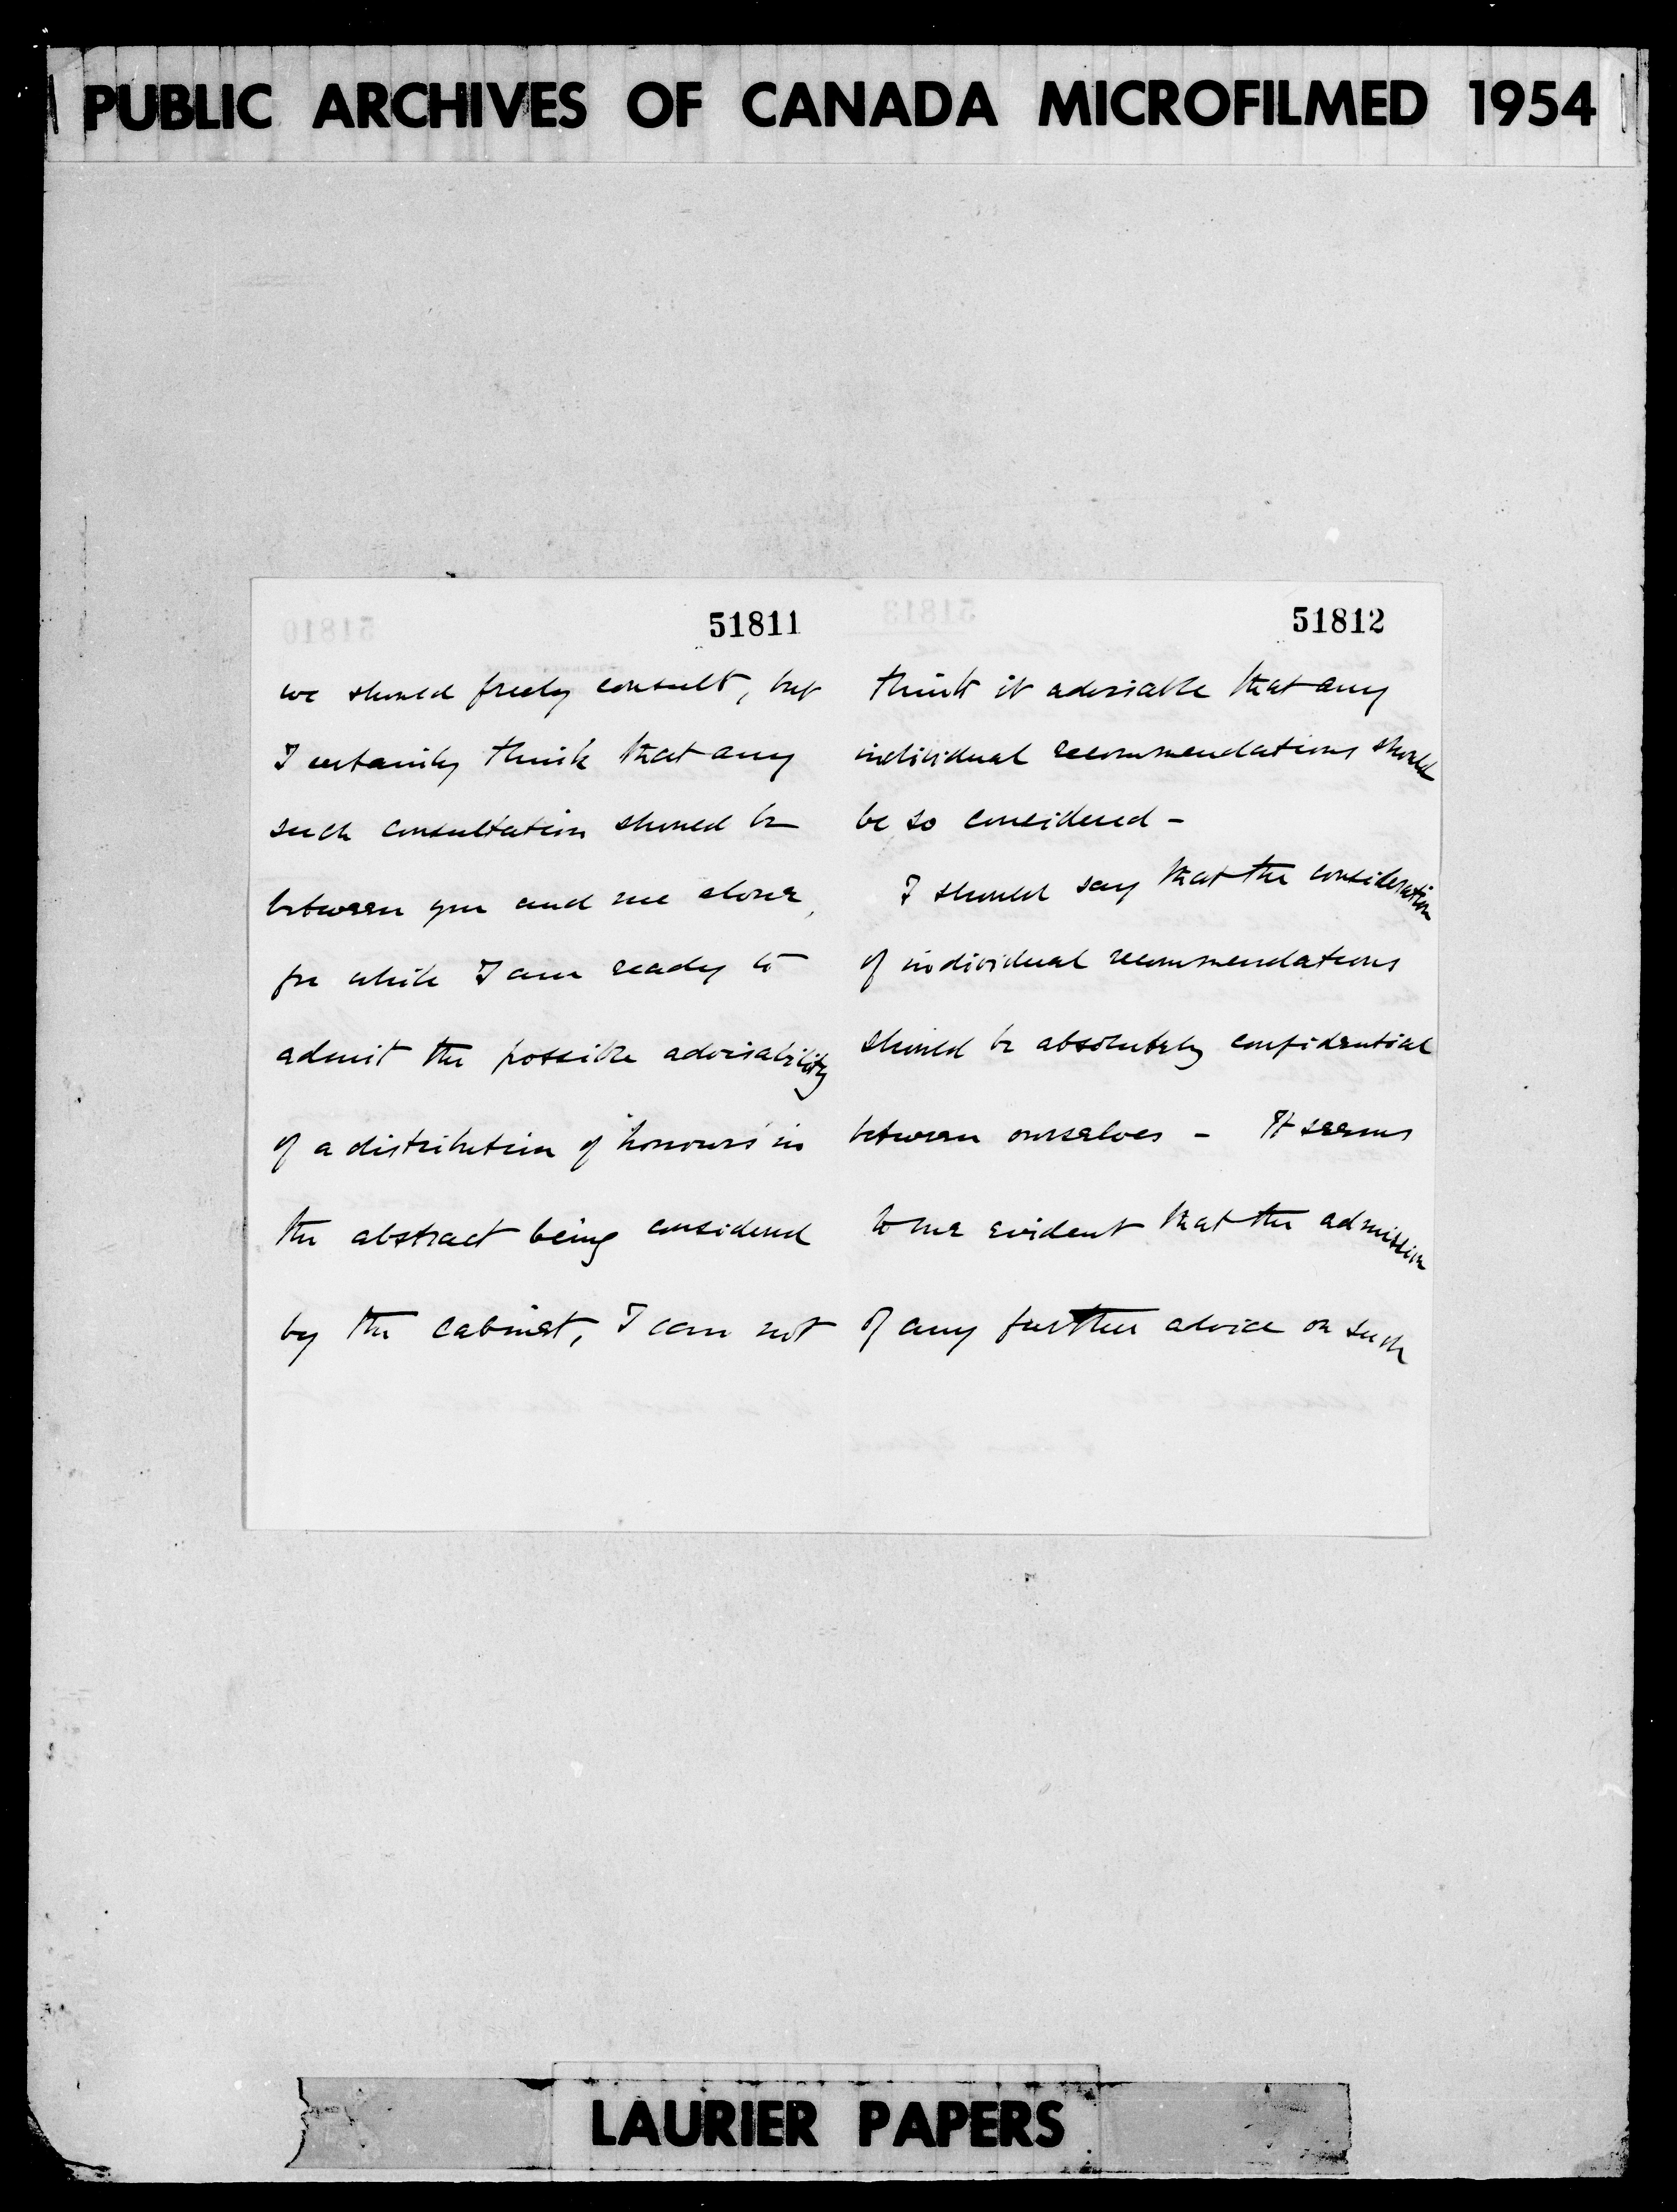 PUBLIC ARCHIVES OF CANADA MICROFILMED 1954
51811
we should freely consult, but
I certainly think that any
such consultation should be
between you and me alone,
for while I am ready to
admit the possible advisability
of a distribution of 'honours' in
the abstract being considered
by the Cabinet, I can not
51812
think it advisable that any
individual recommendations should
be so considered -
I should say that the consideration
of individual recommendations
should be absolutely confidential
between ourselves - It seems
to me evident that the admission
of any further advice on such
LAURIER PAPERS